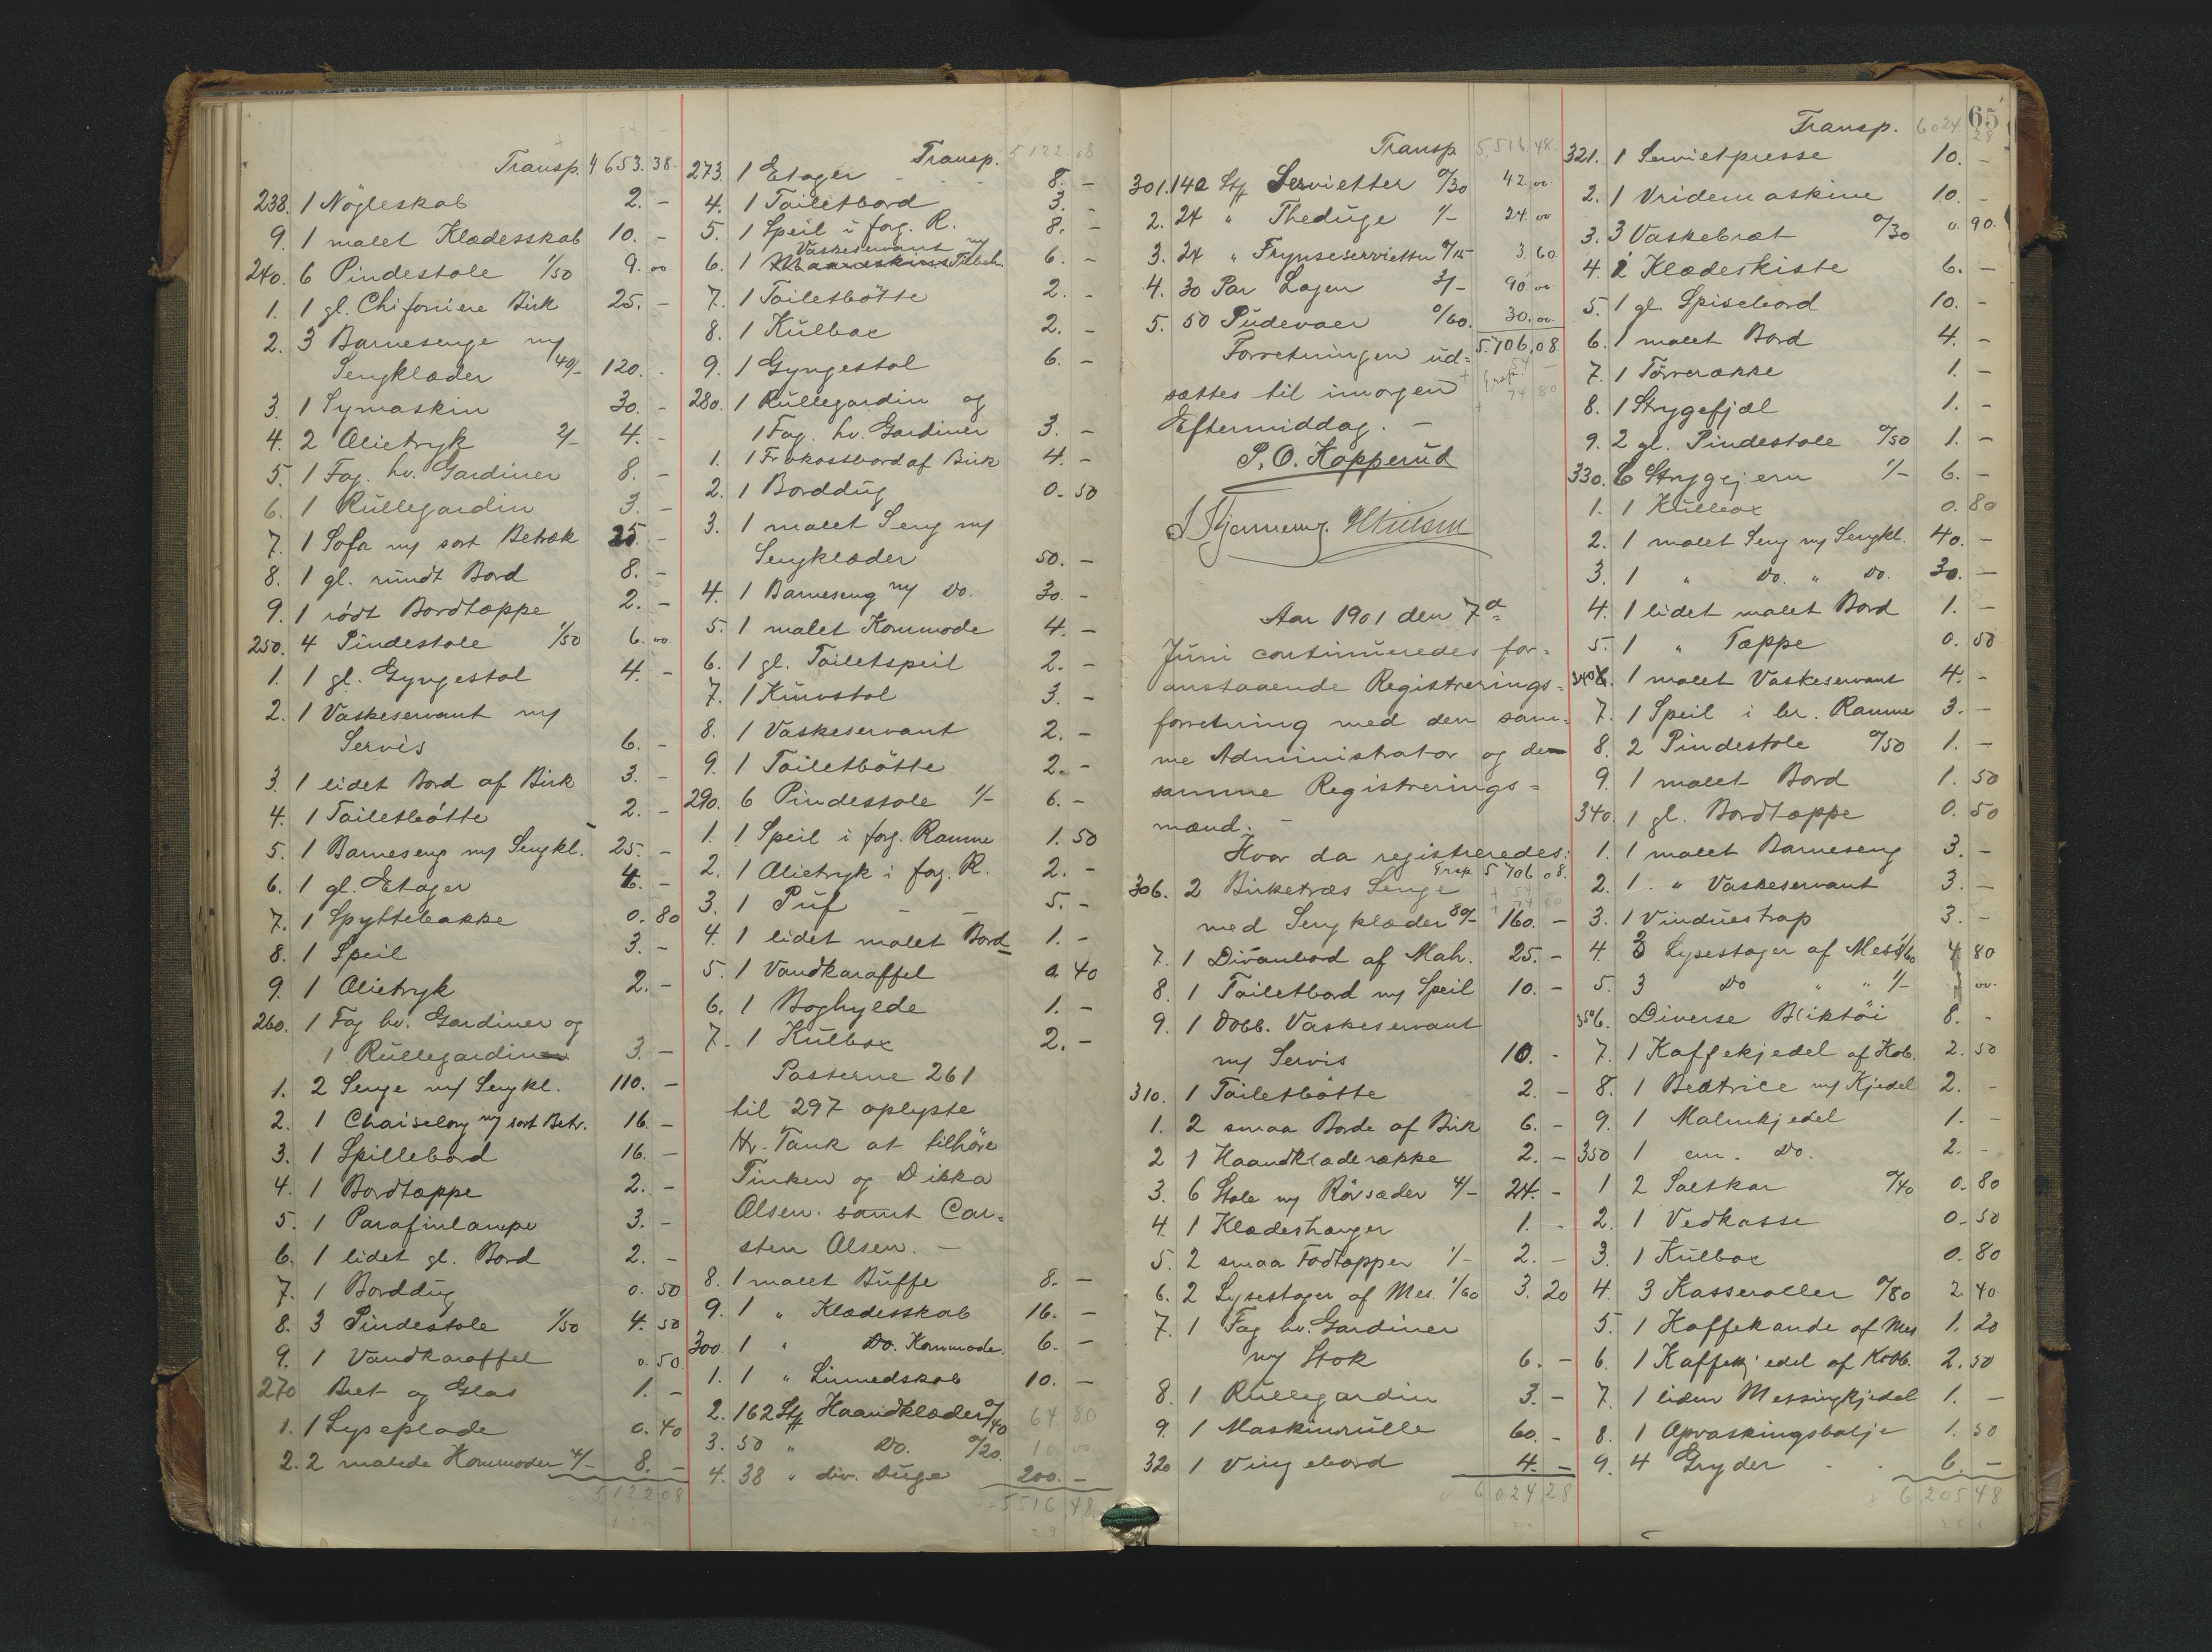 Transp. 4 653. 38.
238. 1 Nøgleskab 2. -
9. 1 malet Klædesskab 10. -
240. 6 Pindestole 1/50 9. 00
1. 1 gl. Chifoniere Birk 25. -
2. 3 Barnesenge m/
Sengklæder 40/- 120. -
3. 1 Symaskin 30. -
4. 2 Olietryk 2/- 4. -
5. 1 Fag. hv. Gardiner 8. -
6. 1 Rullegardin 3. -
7. 1 Sofa m/ sort Betræk 25. -
8. 1 gl. rundt Bord 8. -
9. 1 rødt Bordtæppe 2. -
250. 4 Pindestole 1/50 6. 00
1. 1 gl. Gyngestol 4. -
2. 1 Vaskeservant m/
Servis 6. -
3. 1 lidet Bord af Birk 3. -
4. 1 Toiletbøtte 2. -
5. 1 Barneseng m/ Sengkl. 25. -
6. 1 gl. Etager 4. -
7. 1 Spyttebakke 0. 80
8. 1 Speil 3. -
9. 1 Olietryk 2. -
260. 1 Fag hv. Gardiner og
1 Rullegardin 3. -
1. 2 Senge m/ Sengkl. 110. -
2. 1 Chaiselong m/ sort Betr. 16. -
3. 1 Spillebord 16. -
4. 1 Bordtæppe 2. -
5. 1 Parafinlampe 3. -
6. 1 lidet gl. Bord 2. -
7. 1 Borddug 0. 50
8. 3 Pindestole 1/50 4. 50
9. 1 Vandkaraffel 0. 50
270 Bret og Glas 1. -
1. 1 Lyseplade 0. 40
2. 2 malede Kommoder 4/- 8. -
5,122 08
Transp. 5 122. 08
273. 1 Etager - - - 8. -
4. 1 Toiletbord 3. -
5. 1 Speil i forg. R. 8. -
Vaskeservant m/
6. 1 Tilbeh. 6. -
7. 1 Toiletbøtte 2. -
8. 1 Kulbox 2. -
9. 1 Gyngestol 6. -
280. 1 Rullegardin og
1 Fag. hv. Gardiner 3. -
1. 1 Frokostbord af Birk 4. -
2. 1 Borddug 0. 50
3. 1 malet Seng m/
Sengklæder 50. -
4. 1 Barneseng m/ Do. 30. -
5. 1 malet Kommode 4. -
6. 1 gl. Toiletspeil 2. -
7. 1 Kurvstol 3. -
8. 1 Vaskeservant 2. -
9. 1 Toiletbøtte 2. -
290. 6 Pindestole 1/- 6. -
1. 1 Speil i forg. Ramme 1. 50
2. 1 Olietryk i forg. R. 2. -
3. 1 Puf - - 5. -
4. 1 lidet malet Bord 1. -
5. 1 Vandkaraffel 0. 40
6. 1 Boghylde 1. -
7. 1 Kulbox 2. -
Posterne 261
til 297 oplyste
Hr. Tank at tilhøre
Tinken og Dikka
Olsen. samt Car=
sten Olsen. -
8. 1 malet Buffe 8. -
9. 1 " Klædesskab 16. -
300. 1 " Do. Kommode. 6. -
1. 1 " Linnedskab 10. -
2. 162 Stk Haandklæder 0/40 64 80
3. 50 " Do. 0/20 10 00
4. 38 " div. Duge 200. -
5516. 48
Transp 5,516 48.
301. 140 Stk Servietter 0/30 42. 00
2. 24 " Theduge 1/- 24. 00
3. 24 " Frynseservietter 0/15 3. 60
4. 30 Par Lagen 3/- 90. 00
5. 50 Pudevaer 0/60. 30. 00
5.706,08.
Forretningen ud=
sættes til imorgen
Eftermiddag. -
P. O. Kopperud
Aar 1901 den 7d
Juni continueredes for=
anstaaende Registrerings=
forretning med den sam=
me Administrator og de
samme Registrerings=
mænd. -
Hvor da registreredes:
Trsp 5 706 08.
306. 2 Birketræs Senge
med Sengklæder 80/- 160. -
7. 1 Divanbord af Mah. 25. -
8. 1 Toiletbord m/ Speil 10. -
9. 1 Dobb. Vaskeservant
m/ Servis 10. -
310. 1 Toiletbøtte 2. -
1. 2 smaa Borde af Birk 6. -
2 1 Haandklæderække 2. -
3. 6 Stole m/ Rørsæder 4/- 24. -
4. 1 Klædeshænger 1. -
5. 2 smaa Fodtæpper 1/- 2. -
6. 2 Lysestager af Mes. 1/60 3. 20
7. 1 Fag hv. Gardiner
m/ Stok 6. -
8. 1 Rullegardin 3. -
9. 1 Maskinrulle 60. -
320 1 Vingebord 4. -
6 024 28
65
Transp. 6024 28
321. 1 Servietpresse 10. -
2. 1 Vridemaskine 10. -
3. 3 Vaskebræt 0/30 0. 90.
4. 1 Klædeskiste 6. -
5. 1 gl. Spisebord 10. -
6. 1 malet Bord 4. -
7. 1 Tørrerække 1. -
8. 1 Strygefjæl 1. -
9. 2 gl. Pindestole 0/50 1. -
330. 6 Strygejern 1/- 6. -
1. 1 Kulbox 0. 80
2. 1 malet Seng m/ Sengkl. 40. -
3. 1 " Do. " Do. 30. -
4. 1 lidet malet Bord 1. -
5. 1 " Tæppe 0. 50
1 malet Vaskeservant 4. -
7. 1 Speil i br. Ramme 3. -
8. 2 Pindestole 0/50 1. -
9. 1 malet Bord 1. 50
340. 1 gl. Bordtæppe 0. 50
1. 1 malet Barneseng 3. -
2. 1. " Vaskeservant 3. -
3. 1 Vinduestrap 3. -
4. 3 Lysestager af Mes 1/60 4 80
5. 3 Do " " 1/- 3 00.
Diverse Bliktøi 8. -
7. 1 Kaffekjedel af Kob. 2. 50
8. 1 Beatrice m/ Kjedel 2. -
9. 1 Malmkjedel 1. -
350 1 em. Do. 2. -
1 2 Saltkar 0/40 0. 80
2. 1 Vedkasse 0. 50
3. 1 Kulbox 0. 80
4. 3 Kasseroller 0/80 2 40
5. 1 Kaffekande af Mes 1. 20
6. 1 Kaffekjedel af Kobb. 2. 50
7. 1 liden Messingkjedel 1. -
8. 1 Opvaskingsbalje 1. 50
9. 4 Gryder - - 6. -
6 205 48